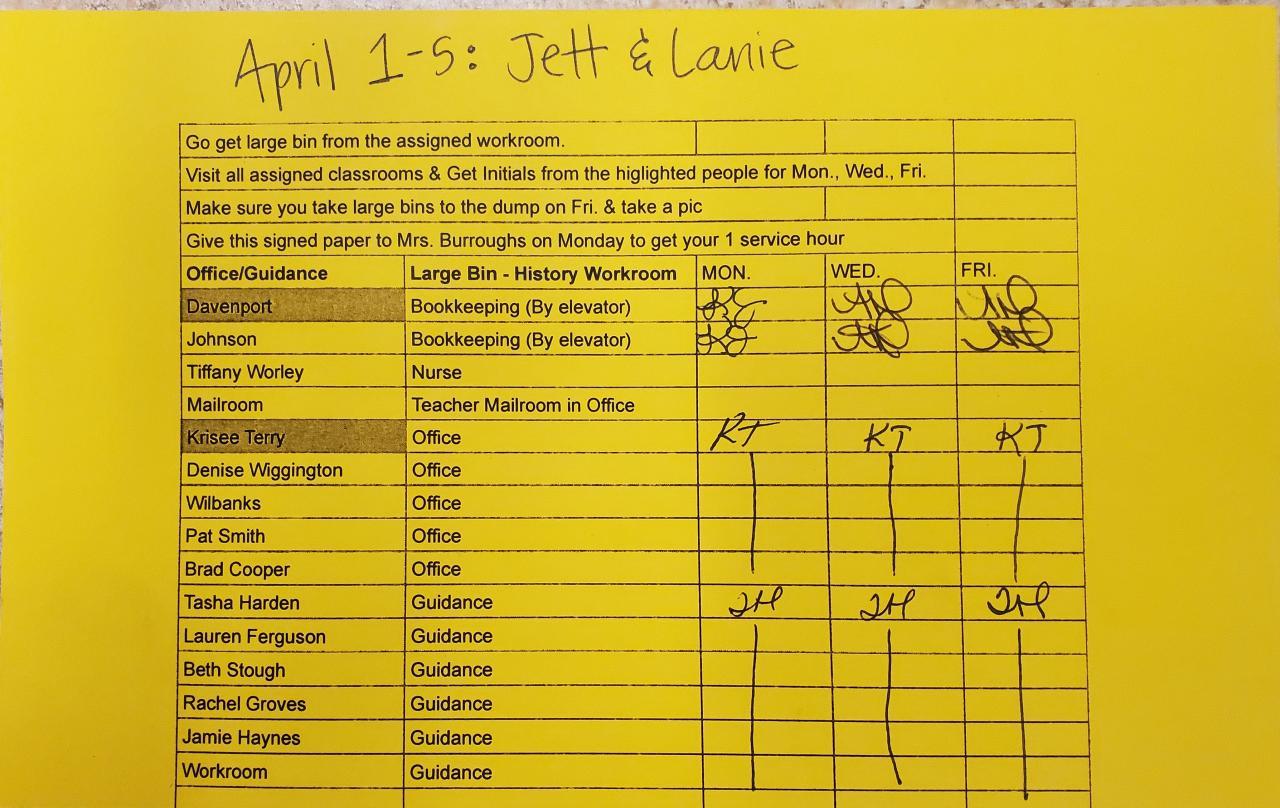 April 1-5: Jett & Lanie
Go get large bin from the assigned workroom.
Visit all assigned classrooms & Get Initials from the higlighted people for Mon., Wed., Fri.
Make sure you take large bins to the dump on Fri. & take a pic
Give this signed paper to Mrs. Burroughs on Monday to get your 1 service hour
Office/Guidance Large Bin - History Workroom MON. WED. FRI.
Davenport Bookkeeping (By elevator)
Johnson Bookkeeping (By elevator)
Tiffany Worley Nurse
Mailroom Teacher Mailroom in Office
Krisee Terry Office KT KT KT
Denise Wiggington Office
Wilbanks Office
Pat Smith Office
Brad Cooper Office
Tasha Harden Guidance TH TH TH
Lauren Ferguson Guidance
Beth Stough Guidance
Rachel Groves Guidance
Jamie Haynes Guidance
Workroom Guidance